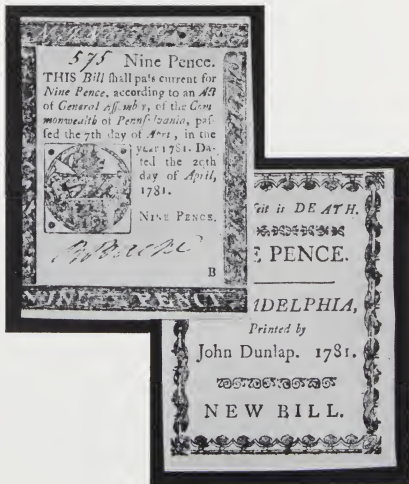 575 Nine Pence.
THIS Bill ſhall paſs current for
Nine Pence, according to an Act
of General Aſſembly, of the Com
monwealth of Pennſylvania, paſ-
ſed the 7th day of April, in the
year 1781. Da-
ted the 20th
day of April,
1781.
NINE PENCE.
B
NINE PENCE
feit is DEATH.
E PENCE.
DELPHIA,
Printed by
John Dunlap. 1781.
NEW BILL.